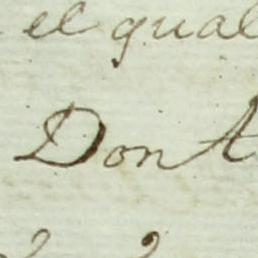 el qual
Don A